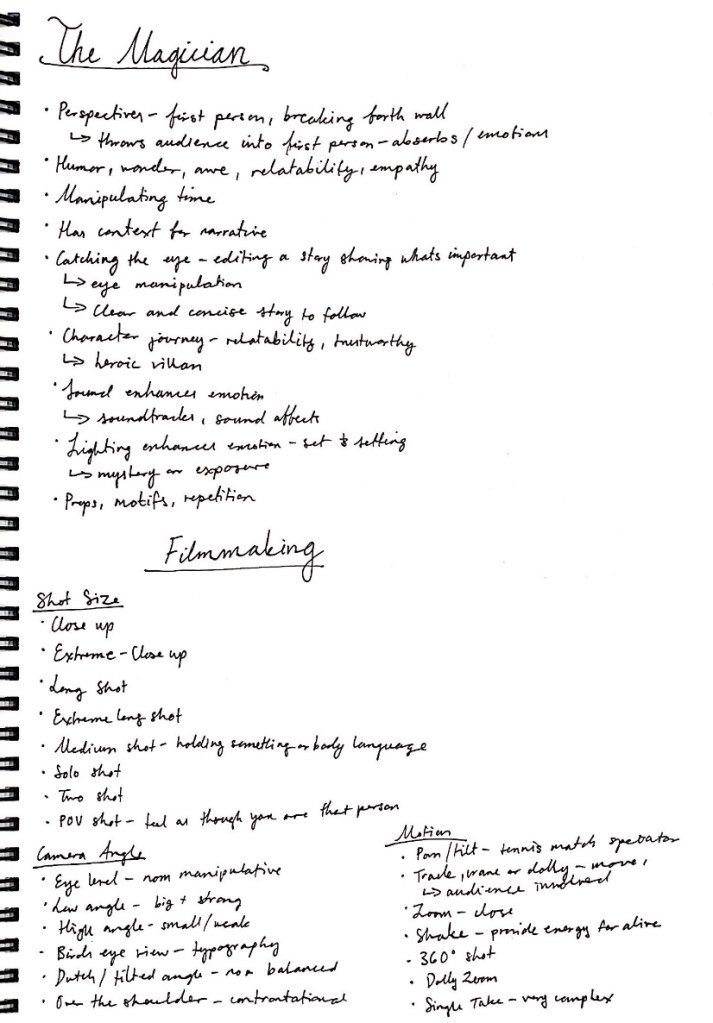 The Magician
· Perspectives - first person, breaking forth wall
↳ throws audience into first person - absorbs / emotions
· Humor, wonder, awe, relatability, empathy
· Manipulating time
· Has context for narrative
· Catching the eye - editing a story showing whats important
↳ eye manipulation
↳ Clear and concise story to follow
· Character journey - relatability, trustworthy
↳ heroic villan
· Sound enhances emotion
↳ soundtracks, sound affects
· Lighting enhances emotion - set & setting
↳ mystery or exposure
· Props, motifs, repetition
Filmmaking
Shot Size
· Close up
· Extreme - Close up
· Long Shot
· Extreme long shot
· Medium shot - holding something or body language
· Solo shot
· Two shot
· POV shot - feel as though you are that person
Camera Angle
· Eye level - non manipulative
· Low angle - big + strong
· High angle - small/weak
· Birds eye view - typography
· Dutch / tilted angle - non balanced
· Over the shoulder - confrontational
Motion
· Pan/tilt - tennis match spectator
· Track, crane or dolly - move,
↳ audience involved
· Zoom - close
· Shake - provide energy for alive
· 360° shot
· Dolly Zoom
· Single Take - very complex